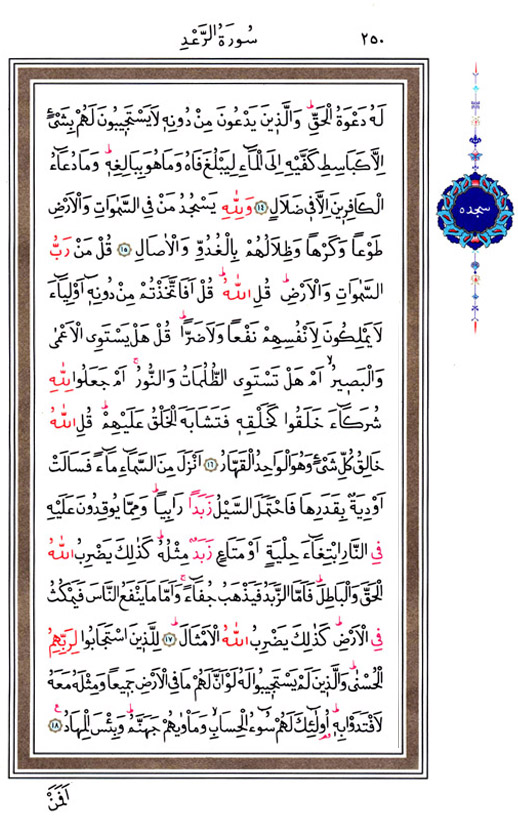 سُورَةُ الرَّعْدِ
٢٥٠
لَهُ دَعْوَةُ الْحَقِّۜ وَالَّذ۪ينَ يَدْعُونَ مِنْ دُونِه۪ لَا يَسْتَج۪يبُونَ لَهُمْ بِشَيْءٍ
اِلَّا كَبَاسِطِ كَفَّيْهِ اِلَى الْمَٓاءِ لِيَبْلُغَ فَاهُ وَمَا هُوَ بِبَالِغِه۪ۜ وَمَا دُعَٓاءُ
الْكَافِر۪ينَ اِلَّا ف۪ي ضَلَالٍ ﴿١٤﴾ وَلِلّٰهِ يَسْجُدُ مَنْ فِي السَّمٰوَاتِ وَالْاَرْضِ
طَوْعاً وَكَرْهاً وَظِلَالُهُمْ بِالْغُدُوِّ وَالْاٰصَالِ ﴿١٥﴾ قُلْ مَنْ رَبُّ
السَّمٰوَاتِ وَالْاَرْضِۜ قُلِ اللّٰهُۜ قُلْ اَفَاتَّخَذْتُمْ مِنْ دُونِه۪ٓ اَوْلِيَٓاءَ
لَا يَمْلِكُونَ لِاَنْفُسِهِمْ نَفْعاً وَلَا ضَراًّۜ قُلْ هَلْ يَسْتَوِي الْاَعْمٰى
وَالْبَص۪يرُۙ اَمْ هَلْ تَسْتَوِي الظُّلُمَاتُ وَالنُّورُۚ اَمْ جَعَلُوا لِلّٰهِ
شُرَكَٓاءَ خَلَقُوا كَخَلْقِه۪ فَتَشَابَهَ الْخَلْقُ عَلَيْهِمْۜ قُلِ اللّٰهُ
خَالِقُ كُلِّ شَيْءٍ وَهُوَ الْوَاحِدُ الْقَهَّارُ ﴿١٦﴾ اَنْزَلَ مِنَ السَّمَٓاءِ مَٓاءً فَسَالَتْ
اَوْدِيَةٌ بِقَدَرِهَا فَاحْتَمَلَ السَّيْلُ زَبَداً رَابِياًۜ وَمِمَّا يُوقِدُونَ عَلَيْهِ
فِي النَّارِ ابْتِغَٓاءَ حِلْيَةٍ اَوْ مَتَاعٍ زَبَدٌ مِثْلُهُۜ كَذٰلِكَ يَضْرِبُ اللّٰهُ
الْحَقَّ وَالْبَاطِلَۜ فَاَمَّا الزَّبَدُ فَيَذْهَبُ جُفَٓاءًۚ وَاَمَّا مَا يَنْفَعُ النَّاسَ فَيَمْكُثُ
فِي الْاَرْضِۜ كَذٰلِكَ يَضْرِبُ اللّٰهُ الْاَمْثَالَۜ ﴿١٧﴾ لِلَّذ۪ينَ اسْتَجَابُوا لِرَبِّهِمُ
الْحُسْنٰىۜ وَالَّذ۪ينَ لَمْ يَسْتَج۪يبُوا لَهُ لَوْ اَنَّ لَهُمْ مَا فِي الْاَرْضِ جَم۪يعاً وَمِثْلَهُ مَعَهُ
لَافْتَدَوْا بِه۪ۜ اُو۬لٰٓئِكَ لَهُمْ سُٓوءُ الْحِسَابِ وَمَأْوٰيهُمْ جَهَنَّمُۜ وَبِئْسَ الْمِهَادُ۟ ﴿١٨﴾
سجده
اَفَمَنْ